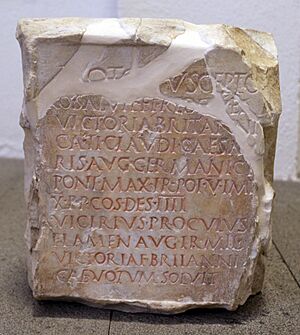 OT VSCEPTO
RO SALVTE ET RE
VICTORIA BRITAN
CA·TI·CLAVDI CAESA
RIS·AVG·GERMANIC
PONT·MAX·TR·POT·V·IM
X·P·P·COS·DES·IIII
VICIRIVS·PROCVLVS
FLAMEN·AVG·TR·MIL
VICTORIAE·BRITANNI
CAE·VOTVM·SOLVIT